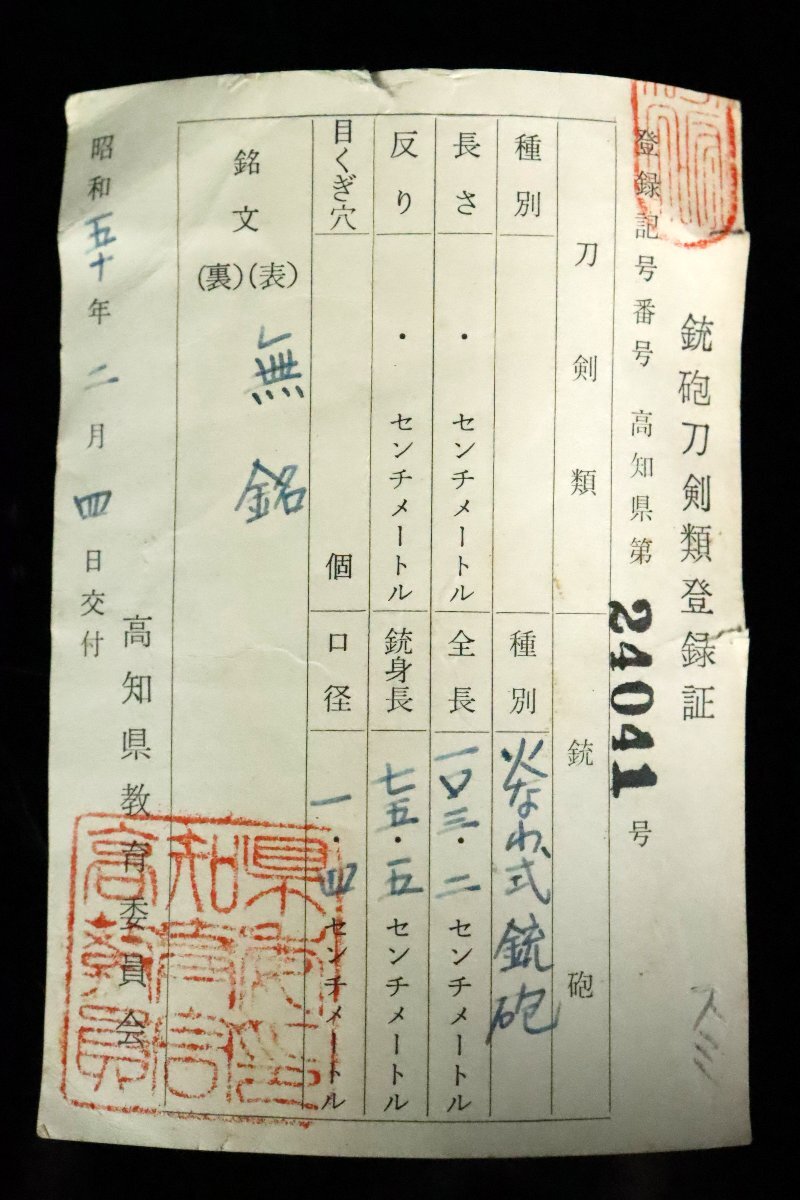 銃砲刀剣類登録証
登録記号番号 高知県第 24041 号
刀剣類 銃砲
種別 種別 火なわ式銃砲
長さ ・ センチメートル 全長 一〇三・二 センチメートル
反り ・ センチメートル 銃身長 七五・五 センチメートル
目くぎ穴 個 口径 一・四 センチメートル
銘文 (表) 無銘
(裏)
高知県教育委員会
昭和五十年二月四日交付